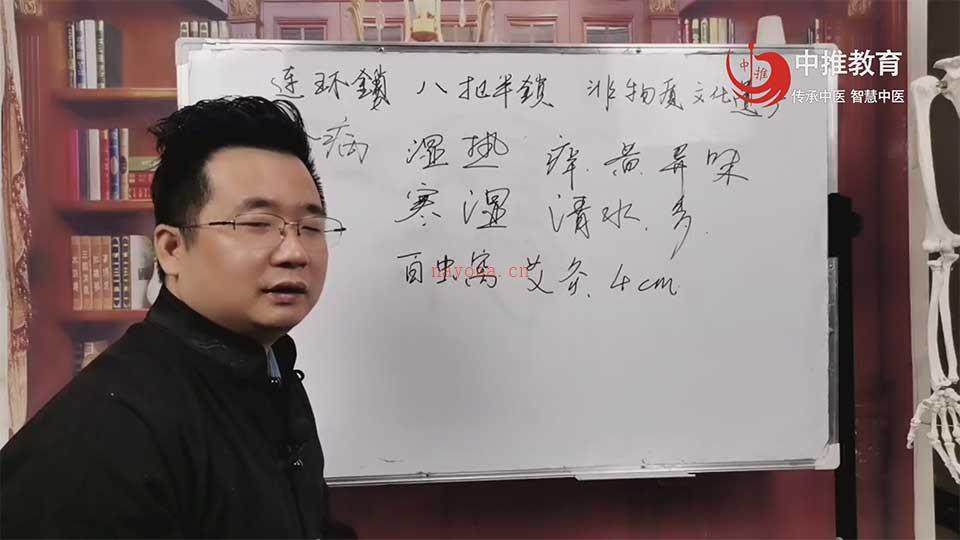 中推教育
传承中医 智慧中医
中推
连环鎖 八把半鎖 非物质文化遗
病 湿热 痒.黄.异味
寒湿 清水.多.
百虫窝 艾灸.4cm
nayona.cn